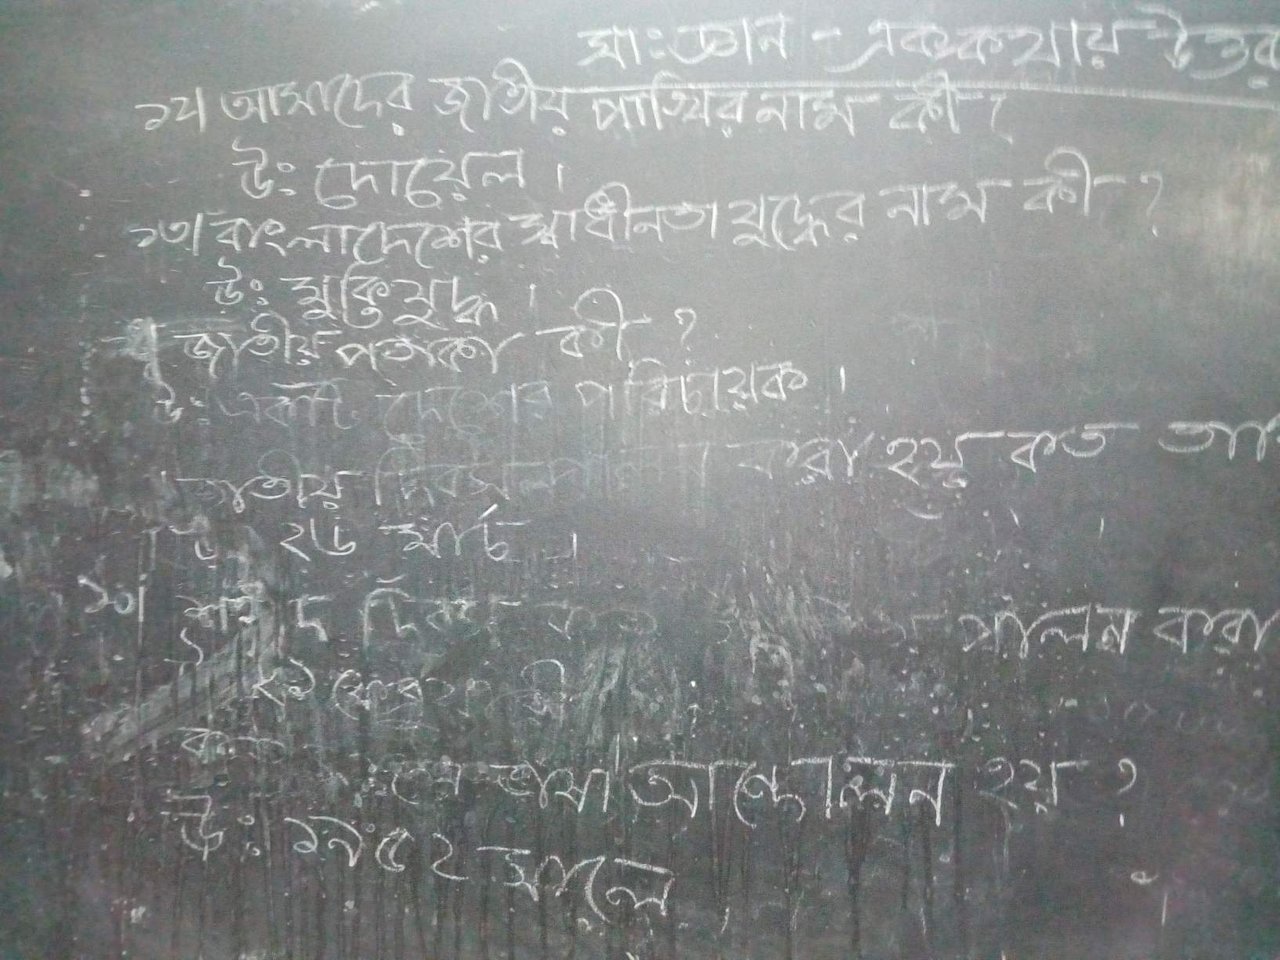 সা: জ্ঞান - এককথায় উত্তর
১২। আমাদের জাতীয় পাখির নাম কী?
উ: দোয়েল।
১৩। বাংলাদেশের স্বাধীনতা যুদ্ধের নাম কী?
উ: মুক্তিযুদ্ধ।
জাতীয় পতাকা কী?
উ: একটি দেশের পরিচায়ক।
জাতীয় দিবস পালন করা হয় কত
উ ২৬ মার্চ।
১০। শহীদ দিবস পালন করা
উ ২১
ভাষা আন্দোলন হয়?
উ: ১৯৫২ সালে